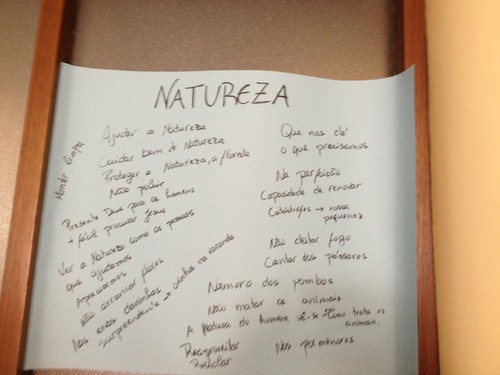 NATUREZA
Manter limpa
Ajudar a Natureza
Cuidar bem da Natureza
Proteger a Natureza, a floresta
Não poluir
Presente Deus para os homens
+ fácil procurar Jesus
Ver a Natureza como as pessoas
que ajudamos
Apreciamos
Não arrancar flores
Nas ervas daninhas
surpreendente → na varanda
Que nos dá
o que precisamos
Na perfeição
Capacidade de renovar
Catástrofes → nossa
pequenez
Não deitar fogo
Cantar dos pássaros
Namoro dos pombos
Não matar os animais
A Natureza do homem vê-se como trata os
animais.
Reaproveitar
Reciclar
Nos pormenores